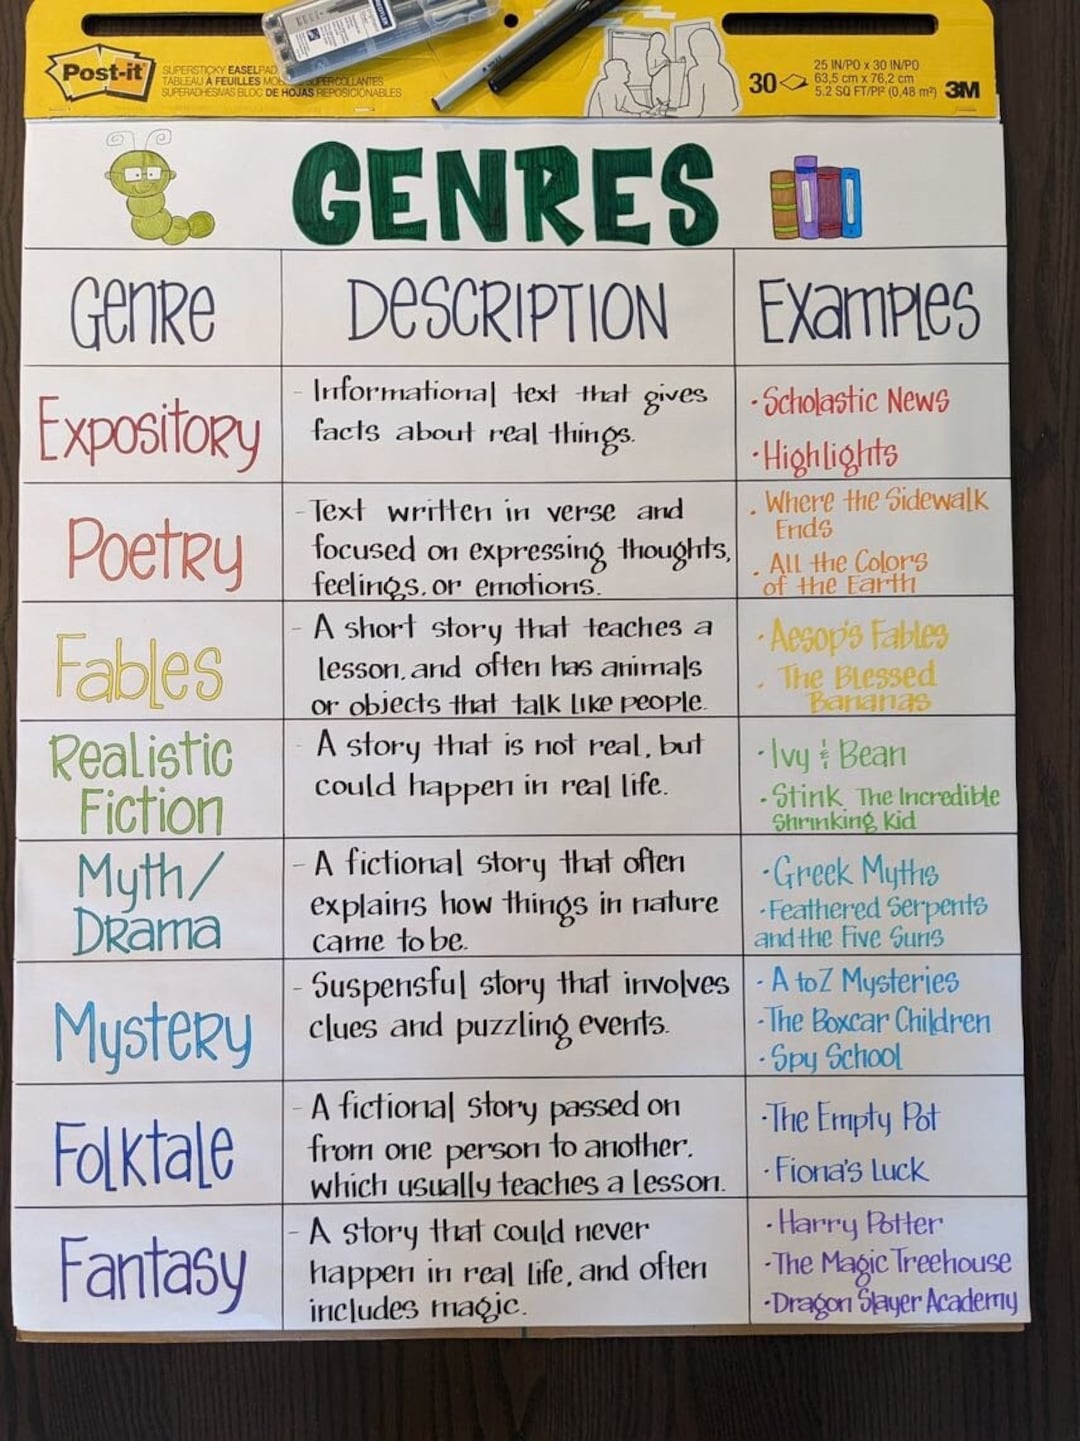 Post-it
SUPERSTICKY EASEL PAD
TABLEAU À FEUILLES MO SUPERCOLLANTES
SUPERADHESIVAS BLOC DE HOJAS REPOSICIONABLES
30
25 IN/PO x 30 IN/PO
63,5 cm x 76,2 cm
5.2 SQ FT/PI² (0,48 m²)
3M
GENRES
Genre
Description
Examples
Expository
- Informational text that gives
facts about real things.
· Scholastic News
· Highlights
Poetry
- Text written in verse and
focused on expressing thoughts,
feelings, or emotions.
· Where the Sidewalk
Ends
· All the Colors
of the Earth
Fables
- A short story that teaches a
lesson, and often has animals
or objects that talk like people.
· Aesop's Fables
· The Blessed
Bananas
Realistic
Fiction
- A story that is not real, but
could happen in real life.
· Ivy & Bean
· Stink The Incredible
Shrinking Kid
Myth/
Drama
- A fictional story that often
explains how things in nature
came to be.
· Greek Myths
· Feathered Serpents
and the Five Suns
Mystery
- Suspensful story that involves
clues and puzzling events.
· A to Z Mysteries
· The Boxcar Children
· Spy School
Folktale
- A fictional story passed on
from one person to another,
which usually teaches a lesson.
· The Empty Pot
· Fiona's Luck
Fantasy
- A story that could never
happen in real life, and often
includes magic.
· Harry Potter
· The Magic Treehouse
· Dragon Slayer Academy